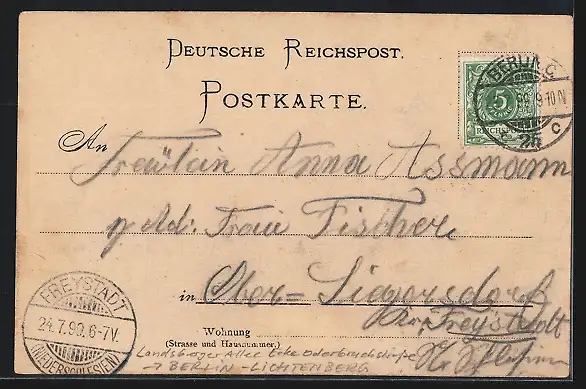 DEUTSCHE REICHSPOST.
POSTKARTE.
BERLIN, C
99 9-10 N
c
5
REICHSPOST
An
Fräulein Anna Assmann
p. Ad: Frau Fischer
in Ober=Siegersdorf
bei Freystadt
FREYSTADT
24.7.99, 6-7V.
(NIEDERSCHLESIEN)
Wohnung
(Strasse und Hausnummer.)
Landsberger Allee Ecke Oderbruchstraße
→ BERLIN-LICHTENBERG